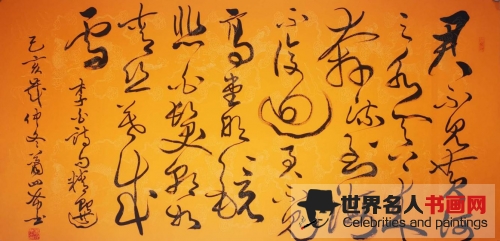 君不见黄河
之水天上来
奔流到海
不復迴君不见
高堂明镜
悲白髮朝如
青丝暮成
雪
李白詩句精選
己亥歲仲冬蕭四书
世界名人书画网
Celebrities and paintings